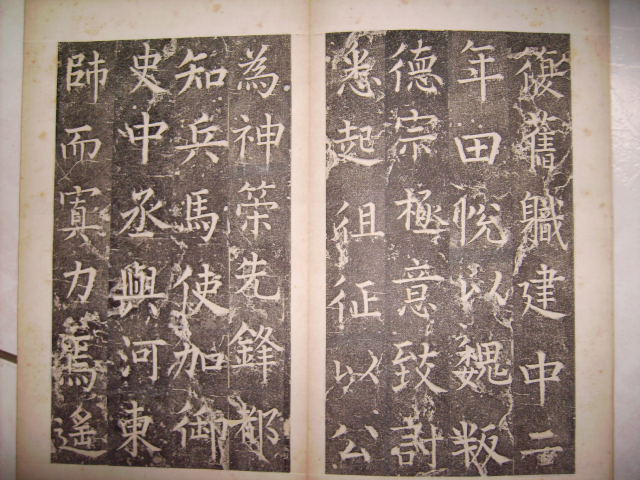 復舊軄建中二
年田悅以魏叛
德宗極意致討
悉起徂征以公
為神策先鋒都
知兵馬使加御
史中丞與河東
師而寘力焉遙